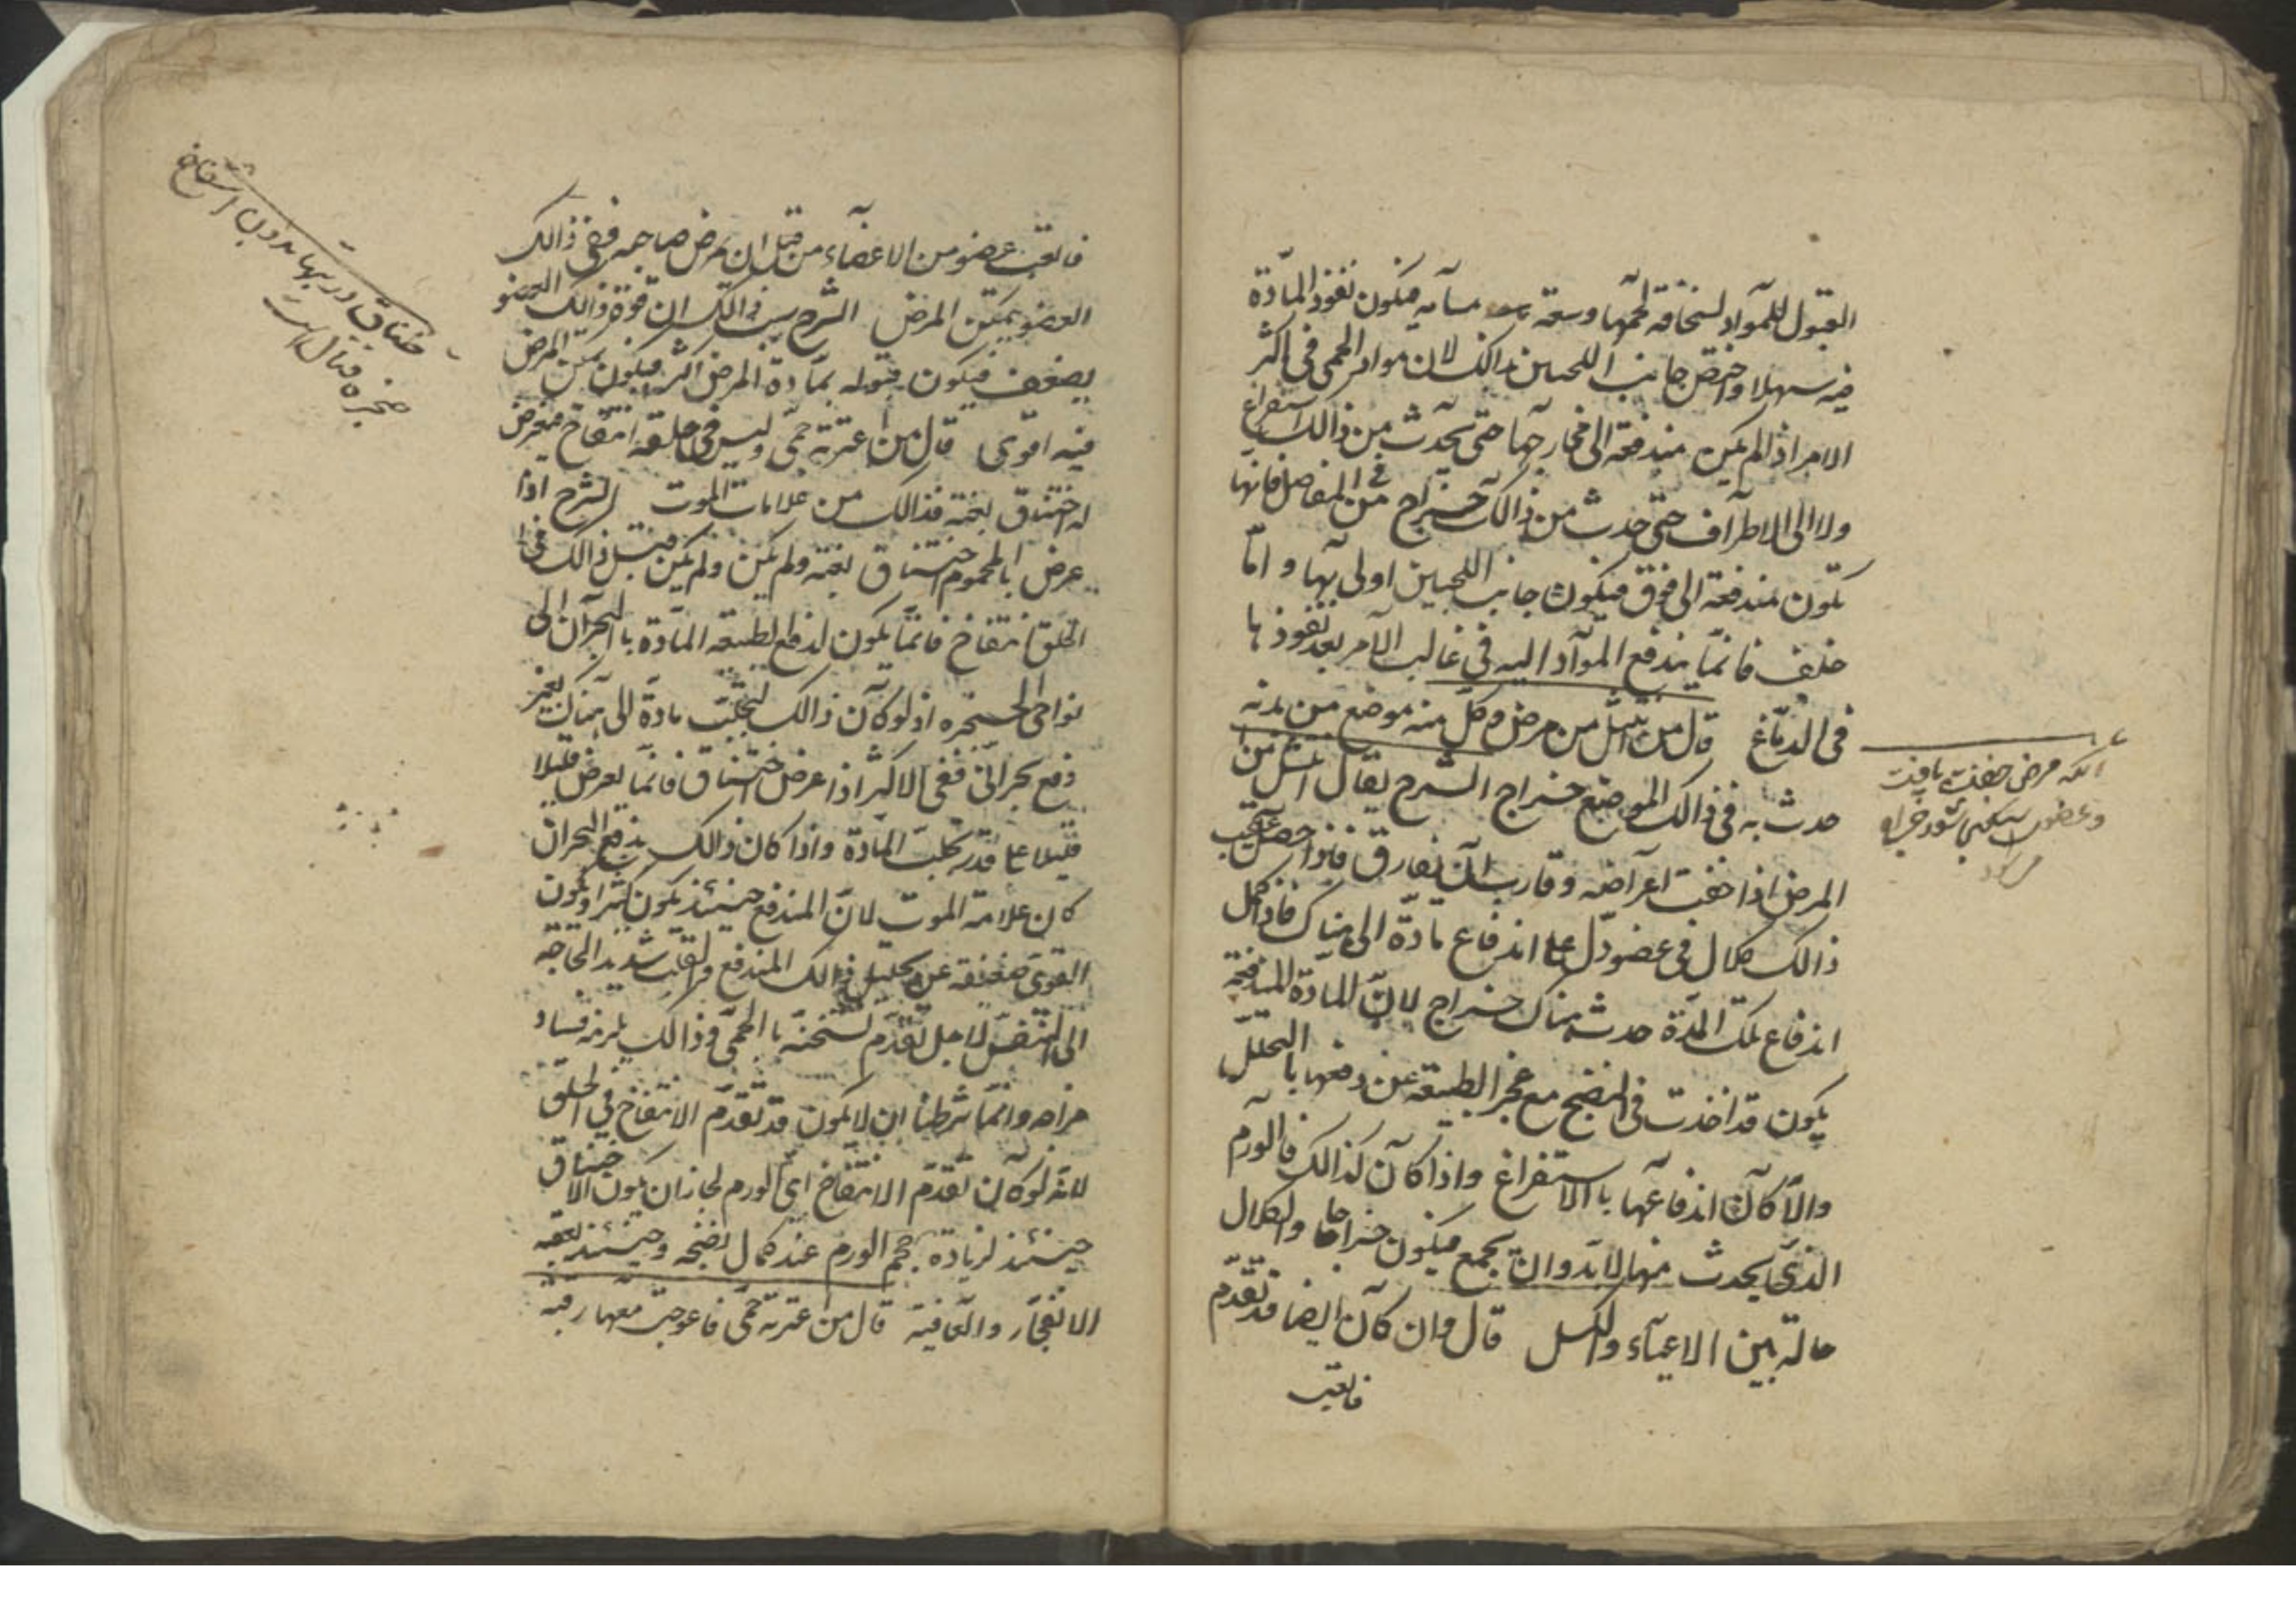 القبول للمواد لسخافة لحمها وسعة مسامه فيكون نفوذ المادة
فيه سهلا واختص جانب اللحيين بذالك لان مواد الحمى فى اكثر
الامر اذا لم يكن مندفعة الى مخارجها حتى يحدث من ذالك استفراغ
ولا الى الاطراف حتى حدث من ذالك خراج فى المفاصل فانها
يكون مندفعة الى فوق فيكون جانب اللحيين اولى بها و اما
خلف فانما يندفع المواد اليه فى غالب الامر بعد نفوذها
فى الدماغ قال من انتشل من مرض وكل منه موضع من بدنه
حدث به فى ذالك الموضع خراج الشرح يقال انتشل من
المرض اذا خفت اعراضه وقارب ان يفارق فاذا حصل عقيب
ذالك كلال فى عضو دل على اندفاع مادة الى هناك فاذا كمل
اندفاع تلك المدة حدث هناك خراج لان المادة المندفعة
يكون قد اخذت فى النضج مع عجز الطبيعة عن دفعها بالتحلل
والا كان اندفاعها باالاستفراغ واذا كان كذالك فالورم
الذى يحدث منها لابد وان يجمع فيكون خراجا والكلال
حالة بين الاعياء والكسل قال وان كان ايضا قد تقدم
فاتعب
انكه مرض خفت يافت
وعضوى سنگين شود خراج
فاتعب عضو من الاعضاء من قبل ان يمرض صاحبه ففى ذالك
العضو يتمكن المرض الشرح سبب ذالك ان قوة ذالك العضو
يضعف فيكون قبوله بمادة المرض اكثر فيكون تمكن المرض
فيه اقوى قال من اعترته حمى وليس فى حلقه انتفاخ فيعرض
له اختناق بغتة فذالك من علامات الموت الشرح اذا
عرض بالمحموم اختناق بغتة ولم يكن ولم يكن قبل ذالك فى
الحلق انتفاخ فانما يكون لدفع الطبيعة المادة باالبحران الى
نواحى الحنجرة اذ لو كان ذالك لتحلب مادة الى هناك بغير
دفع بحرانى ففى الاكثر اذا عرض اختناق فانما يعرض قليلا
قليلا على قدر تحلب المادة واذا كان ذالك بدفع البحران
كان علامة الموت لان المندفع حينئذ يكون كثيرا ويكون
القوى ضعيفة عن تحليل ذالك المندفع والقلب شديد الحاجة
الى التنفس لاجل تقدم تسخنه باالحمى وذالك يلزمه فساد
مزاجه وانما شرطنا ان لا يكون قد تقدم الانتفاخ فى الحلق
لانه لو كان تقدم الانتفاخ اى الورم لجاز ان يكون الاختناق
حينئذ لزيادة حجم الورم عند كمال نضجه وحينئذ يعقبه
الانفجار والعافية قال من اعترته حمى فاعوجت معها رقبته
خناق در تبها بدون انتفاخ
حنجره قتال است